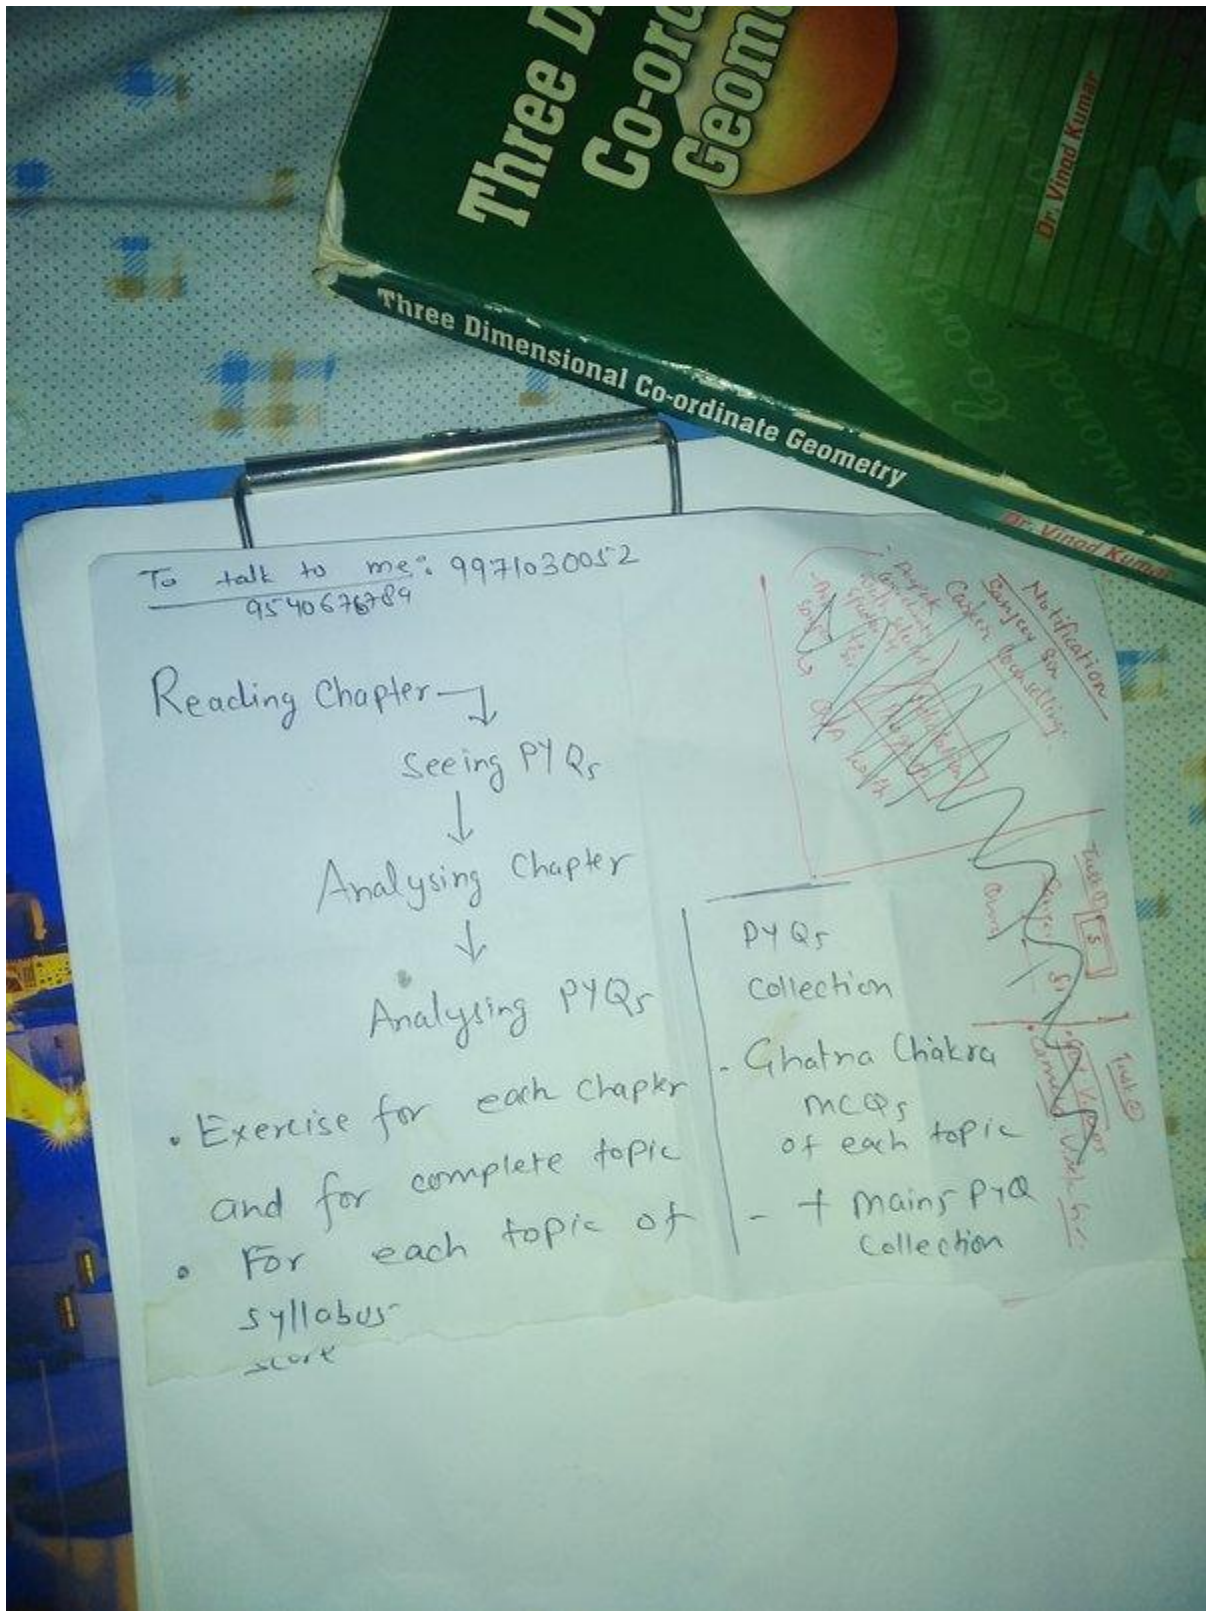 Three D
Co-ord
Geome
Dr. Vinod Kumar
Three Dimensional Co-ordinate Geometry
Dr. Vinod Kumar
To talk to me: 9971030052
9540676789
Reading Chapter
Seeing PYQs
Analysing Chapter
Analysing PYQs
• Exercise for each chapter
and for complete topic
• For each topic of
syllabus
score
PYQs
Collection
- Ghatna Chakra
MCQs
of each topic
- + Mains PYQ
Collection
Notification
Sanjeev Sir
Career Counselling
Task ①
5
Task ②